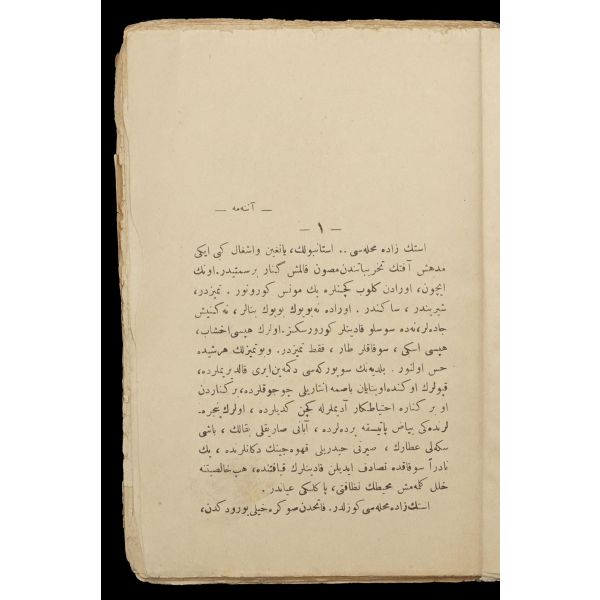 — آننه‌مه —
— ١ —
استك زاده محله‌سی .. استانبولك، یانغین واشغال كبی ایكی
مدهش آفتك تخریباتندن مصون قالمش كنار برسمتیدر. اونك
ایچون، اورادن كلوب كچنلره بك مونس كورونور . تمیزدر،
شیریندر ، ساكندر . اوراده نه‌بویوك بویوك بنالر، نه‌كنیش
جاده‌لر، نه‌ده سوسلو قادینلر كوررسكز. اولرك هپسی اخشاب،
هپسی اسكی ، سوقاقلر طار ، فقط تمیزدر. وبوتمیزلك هرشیده
حس اولنور . بلدیه‌نك سوپوركه‌سی دكمه‌ین ایری قالدیریملرده،
قپولرك اوكنده اوینایان باصمه انتاریلی چوجوقلرده، بركناردن
او بر كناره احتیاطكار آدیملرله كچن كدیلرده ، اولرك پنجره‌ـ
لرنده‌كی بیاض پاتیسقه پرده‌لرده ، آبانی صاریقلی بقالك ، باشی
تككه‌لی عطارك ، صیرتی حیدریلی قهوه‌جینك دكانلرنده ، بك
نادراً سوقاقده تصادف ایدیلن قادینلرك قیافتنده، هپ خالصیتنه
خلل كلمه‌مش محیطك نظافتی، پاكلكی عیاندر .
استك زاده محله‌سی كوزلدر. فاتحدن صوكره خیلی یورودكدن،